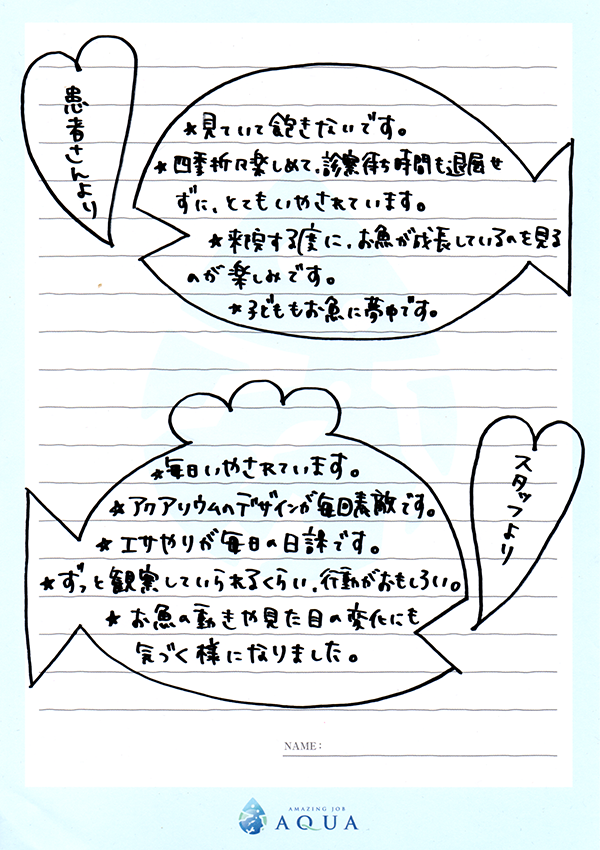 患者さんより
★見ていて飽きないです。
★四季折々楽しめて、診察待ち時間も退屈せ
ずに、とてもいやされています。
★来院する度に、お魚が成長しているのを見る
のが楽しみです。
★子どももお魚に夢中です。
スタッフより
★毎日いやされています。
★アクアリウムのデザインが毎回素敵です。
★エサやりが毎日の日課です。
★ずっと観察していられるくらい、行動がおもしろい。
★お魚の動きや見た目の変化にも
気づく様になりました。
NAME:
AMAZING JOB
AQUA